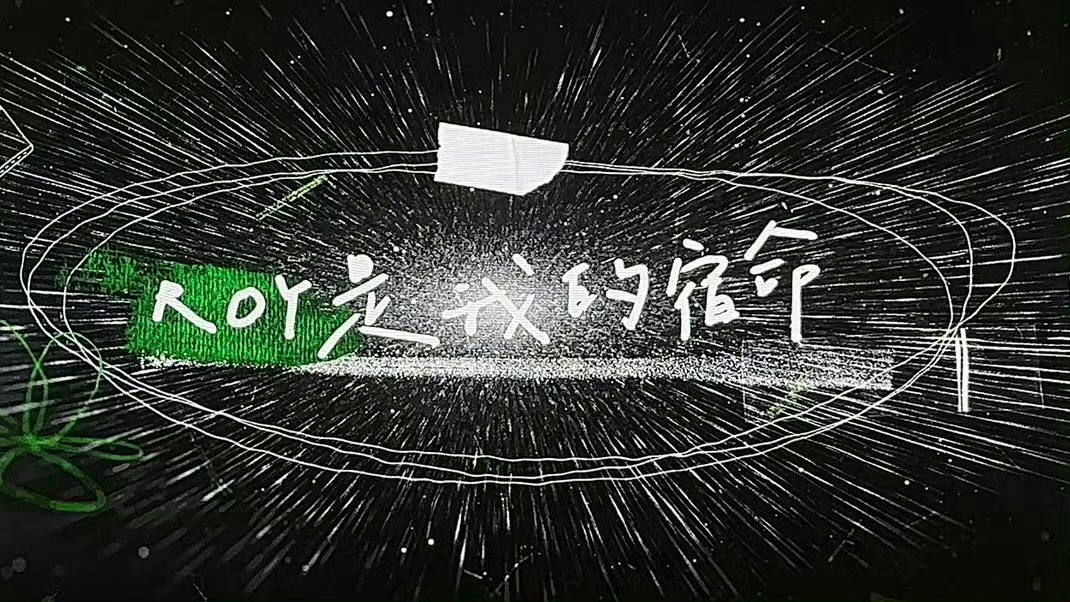 ROY是我的宿命